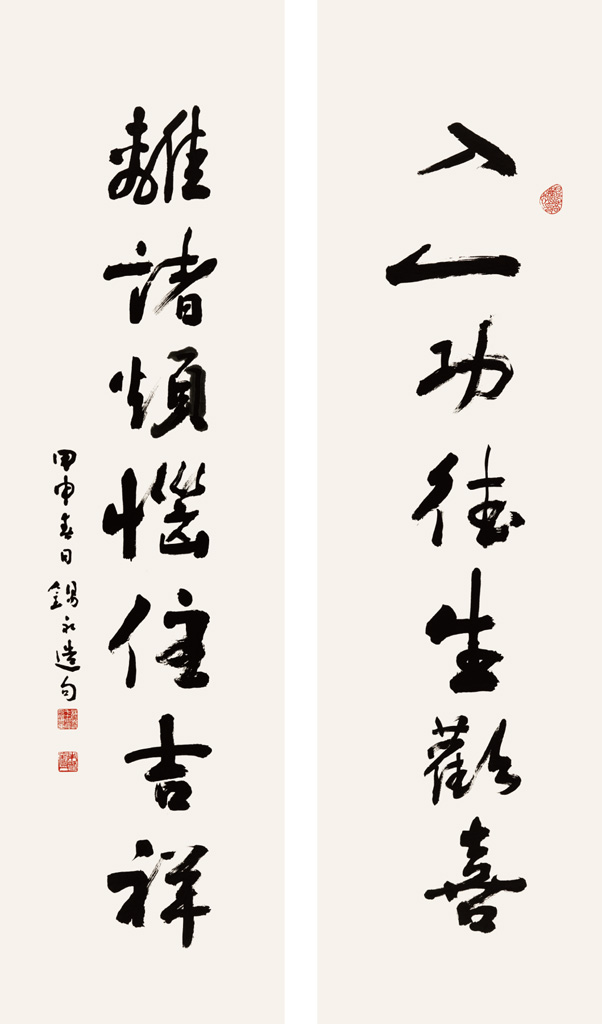 入一功德生歡喜
離諸煩惱住吉祥
甲申春日錫永造句